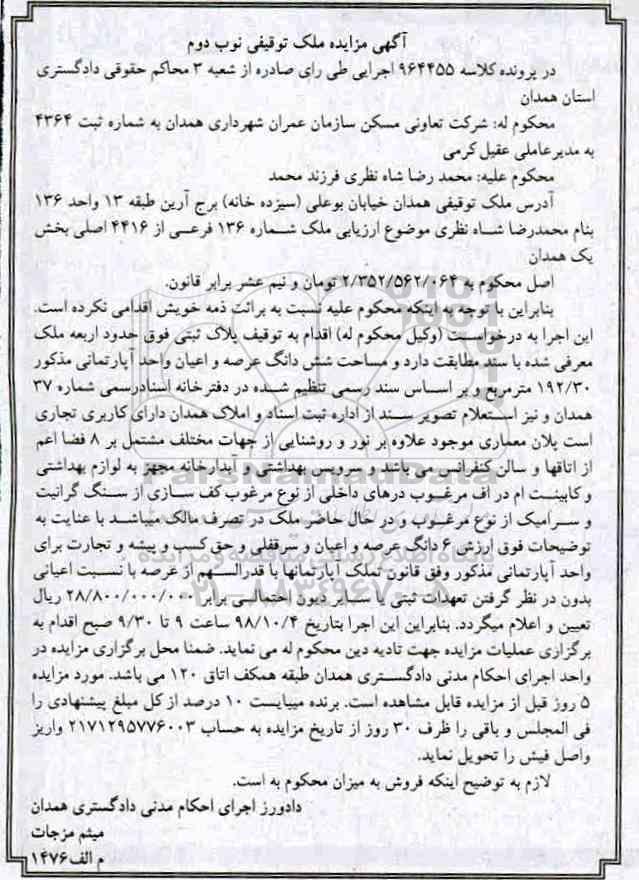 آگهی مزایده ملک توقیفی نوب دوم
در پرونده کلاسه ۹۶۴۴۵۵ اجرایی طی رای صادره از شعبه ۳ محاکم حقوقی دادگستری
استان همدان
محکوم له: شرکت تعاونی مسکن سازمان عمران شهرداری همدان به شماره ثبت ۴۳۶۴
به مدیرعاملی عقیل کرمی
محکوم علیه: محمد رضا شاه نظری فرزند محمد
آدرس ملک توقیفی همدان خیابان بوعلی (سیزده خانه) برج آرین طبقه ۱۳ واحد ۱۳۶
بنام محمدرضا شاه نظری موضوع ارزیابی ملک شماره ۱۳۶ فرعی از ۴۴۱۶ اصلی بخش
یک همدان
اصل محکوم به ۲/۳۵۲/۵۶۲/۰۶۴ تومان و نیم عشر برابر قانون.
بنابراین با توجه به اینکه محکوم علیه نسبت به برائت ذمه خویش اقدامی نکرده است.
این اجرا به درخواست (وکیل محکوم له) اقدام به توقیف پلاک ثبتی فوق حدود اربعه ملک
معرفی شده با سند مطابقت دارد و مساحت شش دانگ عرصه و اعیان واحد آپارتمانی مذکور
۱۹۲/۳۰ مترمربع و بر اساس سند رسمی تنظیم شده در دفترخانه اسنادرسمی شماره ۳۷
همدان و نیز استعلام تصویر سند از اداره ثبت اسناد و املاک همدان دارای کاربری تجاری
است پلان معماری موجود علاوه بر نور و روشنایی از جهات مختلف مشتمل بر ۸ فضا اعم
از اتاقها و سالن کنفرانس می باشد و سرویس بهداشتی و آبدارخانه مجهز به لوازم بهداشتی
و کابینت ام در اف مرغوب درهای داخلی از نوع مرغوب کف سازی از سنگ گرانیت
و سرامیک از نوع مرغوب و در حال حاضر ملک در تصرف مالک میباشد با عنایت به
توضیحات فوق ارزش ۶ دانگ عرصه و اعیان و سرقفلی و حق کسب و پیشه و تجارت برای
واحد آپارتمانی مذکور وفق قانون تملک آپارتمانها با قدرالسهم از عرصه با نسبت اعیانی
بدون در نظر گرفتن تعهدات ثبتی یا سایر دیون احتمالی برابر ۲۸/۸۰۰/۰۰۰/۰۰۰ ریال
تعیین و اعلام میگردد. بنابراین این اجرا بتاریخ ۹۸/۱۰/۴ ساعت ۹ تا ۹/۳۰ صبح اقدام به
برگزاری عملیات مزایده جهت تادیه دین محکوم له می نماید. ضمنا محل برگزاری مزایده در
واحد اجرای احکام مدنی دادگستری همدان طبقه همکف اتاق ۱۲۰ می باشد. مورد مزایده
۵ روز قبل از مزایده قابل مشاهده است. برنده میبایست ۱۰ درصد از کل مبلغ پیشنهادی را
فی المجلس و باقی را ظرف ۳۰ روز از تاریخ مزایده به حساب ۲۱۷۱۲۹۵۷۷۶۰۰۳ واریز
واصل فیش را تحویل نماید.
لازم به توضیح اینکه فروش به میزان محکوم به است.
دادورز اجرای احکام مدنی دادگستری همدان
میثم مزجات
م الف۱۴۷۶
ParsNamadData